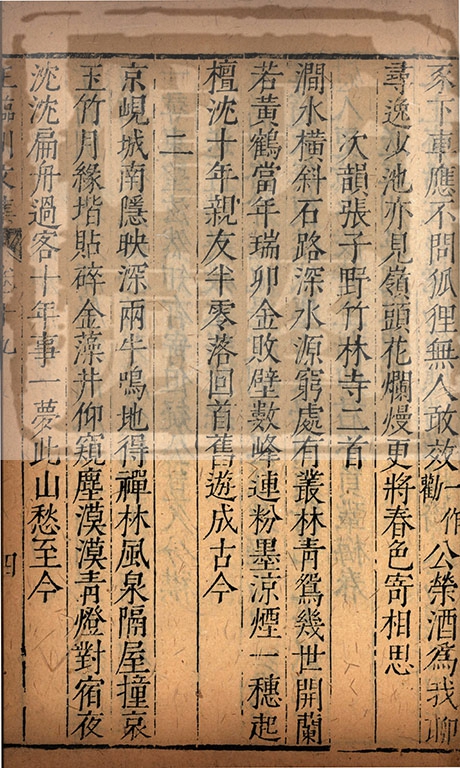 豕下車應不問狐狸無人敢效一作勸公榮酒爲我聊
尋逸少池亦見嶺頭花爛熳更將春色寄相思
次韻張子野竹林寺二首
澗水橫斜石路深水源窮處有叢林青鴛幾世開蘭
若黃鶴當年瑞卯金敗壁數峰連粉墨涼煙一穗起
檀沈十年親友半零落回首舊遊成古今
二
京峴城南隱映深兩牛鳴地得禪林風泉隔屋撞哀
玉竹月緣堦貼碎金藻井仰窺塵漠漠青燈對宿夜
沈沈扁舟過客十年事一夢此山愁至今
四